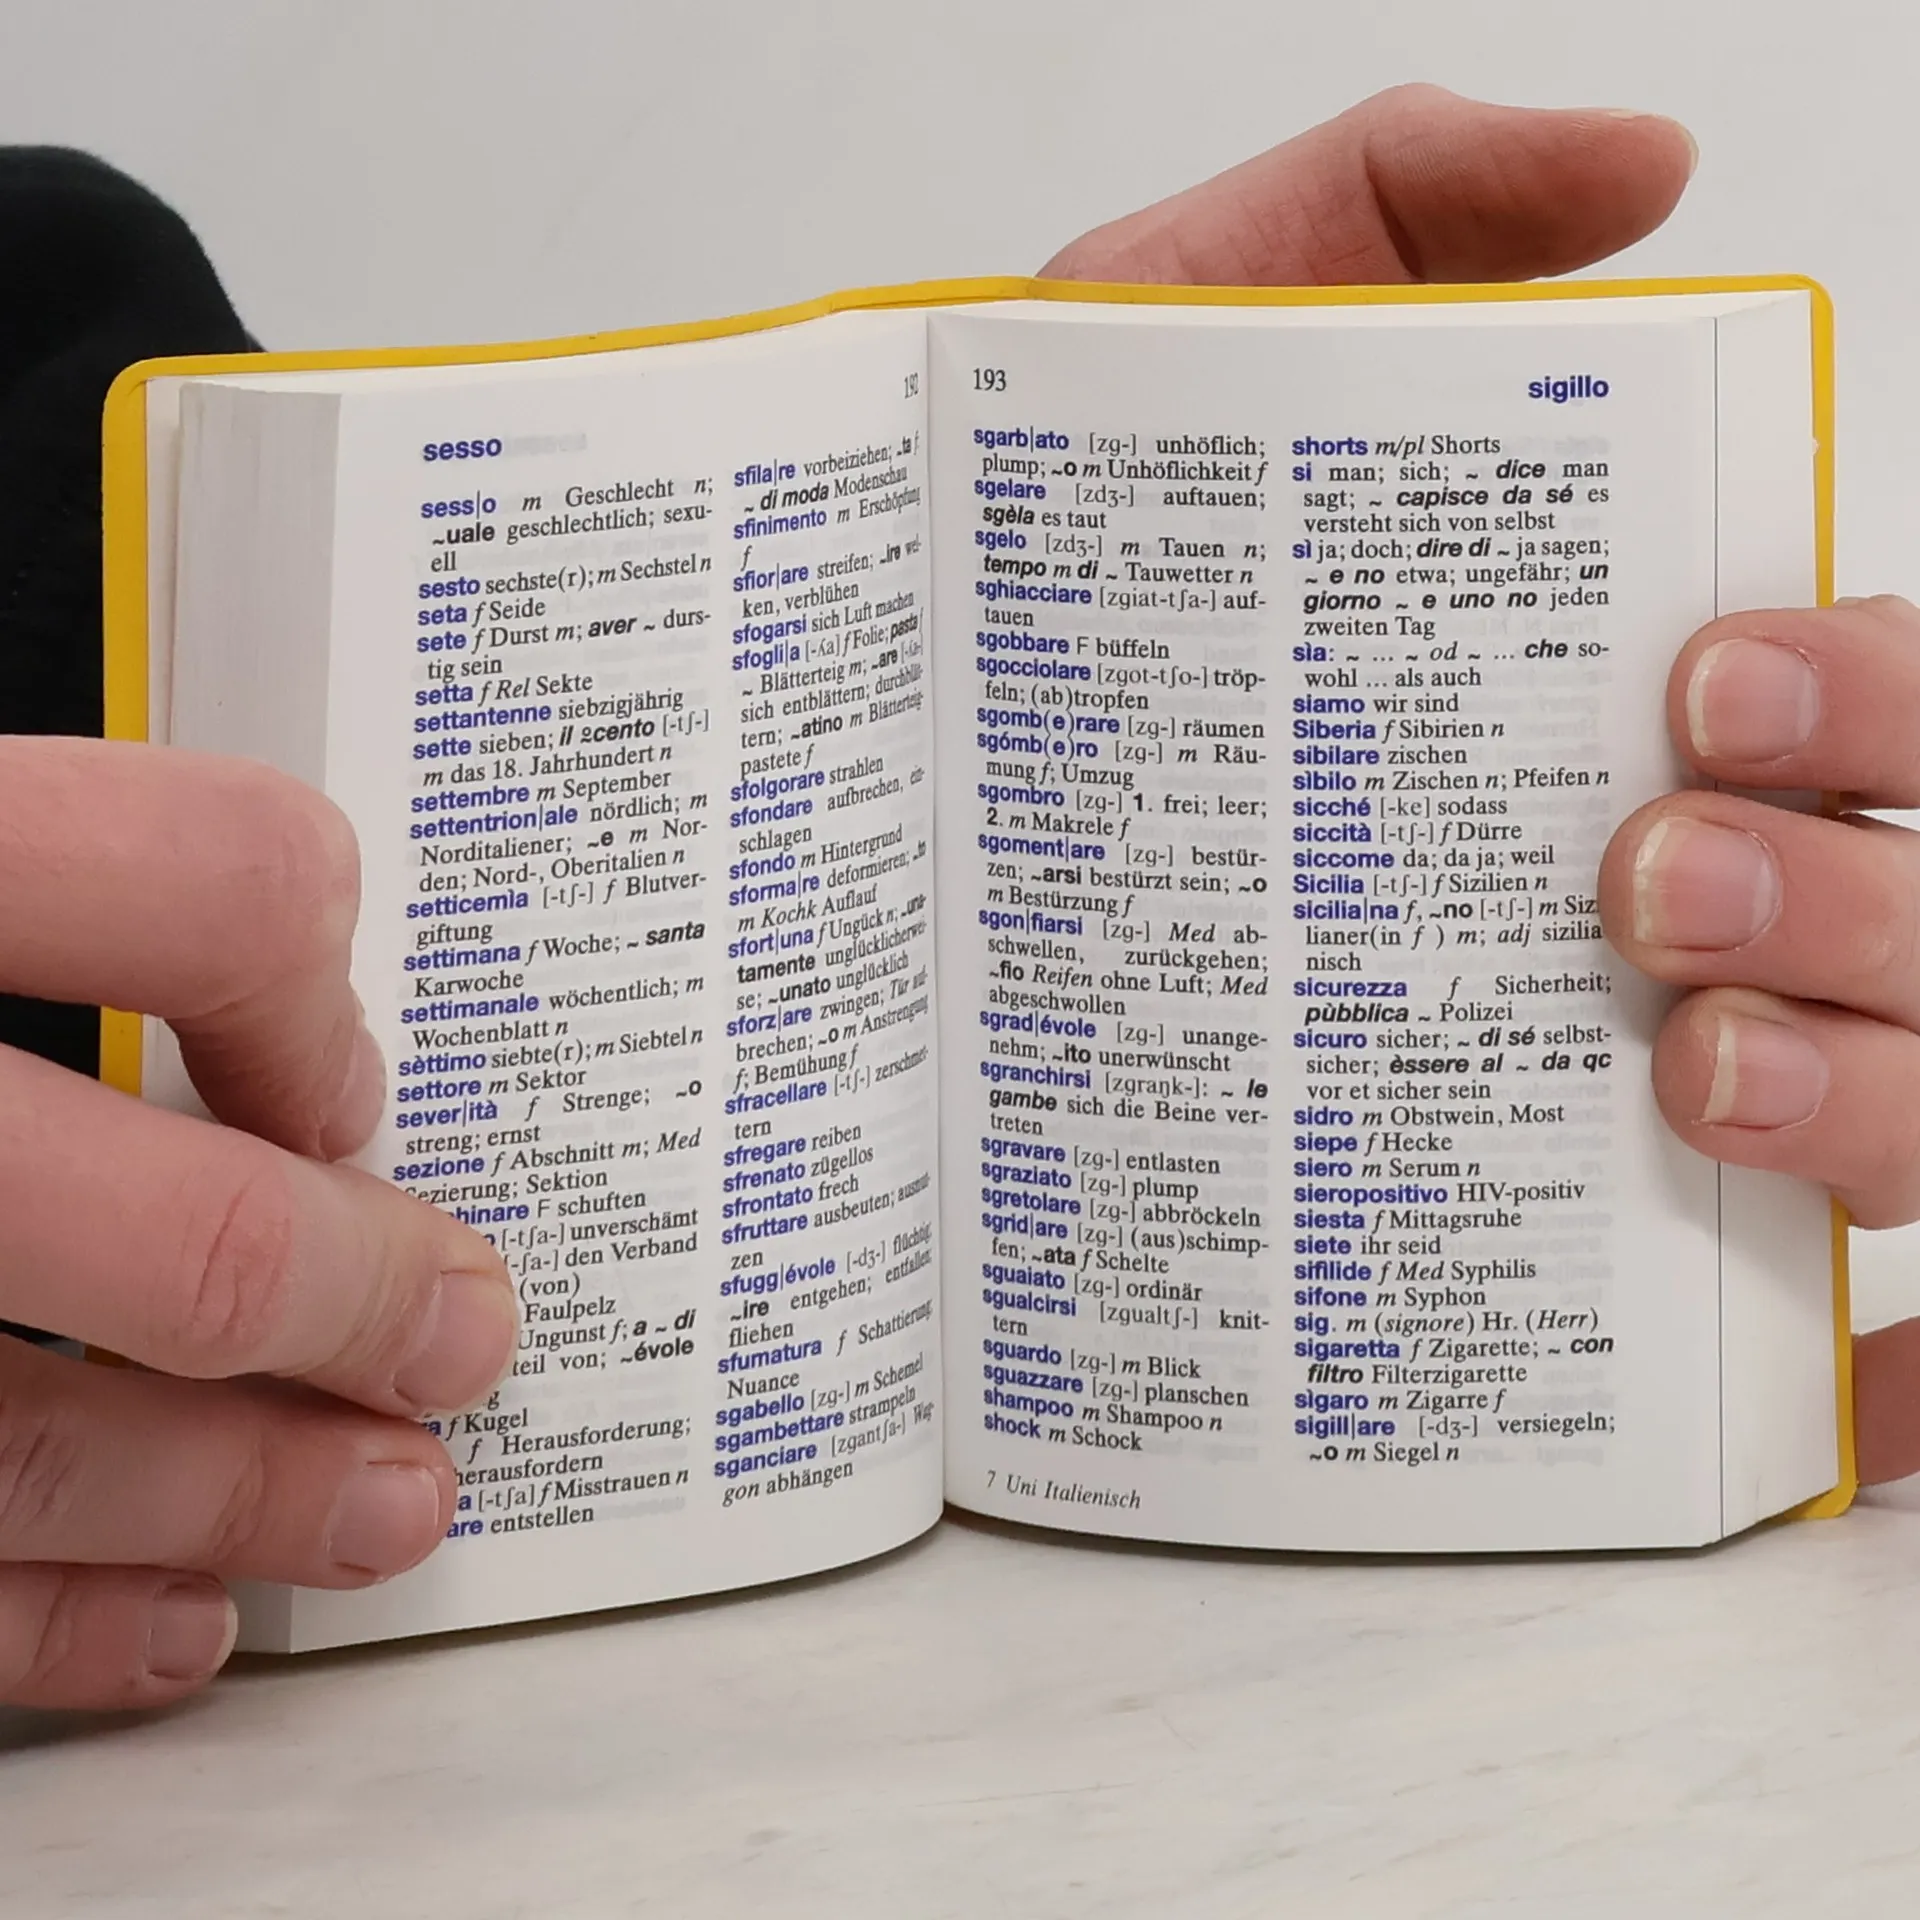 192
sesso
sess|o m Geschlecht n;
~uale geschlechtlich; sexu-
ell
sesto sechste(r); m Sechstel n
seta f Seide
sete f Durst m; aver ~ durs-
tig sein
setta f Rel Sekte
settantenne siebzigjährig
sette sieben; il 2cento [-tʃ-]
m das 18. Jahrhundert n
settembre m September
settentrion|ale nördlich; m
Norditaliener; ~e m Nor-
den; Nord-, Oberitalien n
setticemìa [-tʃ-] f Blutver-
giftung
settimana f Woche; ~ santa
Karwoche
settimanale wöchentlich; m
Wochenblatt n
sèttimo siebte(r); m Siebtel n
settore m Sektor
sever|ità f Strenge; ~o
streng; ernst
sezione f Abschnitt m; Med
Sezierung; Sektion
hinare F schuften
[-tʃa-] unverschämt
[-ʃa-] den Verband
(von)
Faulpelz
Ungunst f; a ~ di
teil von; ~évole
g
a f Kugel
f Herausforderung;
herausfordern
a [-tʃa] f Misstrauen n
are entstellen
sfila|re vorbeiziehen; ~ta f
~ di moda Modenschau
sfinimento m Erschöpfung
f
sfior|are streifen; ~ire wel-
ken, verblühen
sfogarsi sich Luft machen
sfogli|a [-ʎa] f Folie; pasta f
~ Blätterteig m; ~are [-ʎa-]
sich entblättern; durchblät-
tern; ~atino m Blätterteig-
pastete f
sfolgorare strahlen
sfondare aufbrechen, ein-
schlagen
sfondo m Hintergrund
sforma|re deformieren; ~to
m Kochk Auflauf
sfort|una f Ungück n; ~una-
tamente unglücklicherwei-
se; ~unato unglücklich
sforz|are zwingen; Tür auf-
brechen; ~o m Anstrengung
f; Bemühung f
sfracellare [-tʃ-] zerschmet-
tern
sfregare reiben
sfrenato zügellos
sfrontato frech
sfruttare ausbeuten; ausnut-
zen
sfugg|évole [-dʒ-] flüchtig;
~ire entgehen; entfallen;
fliehen
sfumatura f Schattierung;
Nuance
sgabello [zg-] m Schemel
sgambettare strampeln
sganciare [zgantʃa-] Wag-
gon abhängen
193
sigillo
sgarb|ato [zg-] unhöflich;
plump; ~o m Unhöflichkeit f
sgelare [zdʒ-] auftauen;
sgèla es taut
sgelo [zdʒ-] m Tauen n;
tempo m di ~ Tauwetter n
sghiacciare [zgiat-tʃa-] auf-
tauen
sgobbare F büffeln
sgocciolare [zgot-tʃo-] tröp-
feln; (ab)tropfen
sgomb(e)rare [zg-] räumen
sgómb(e)ro [zg-] m Räu-
mung f; Umzug
sgombro [zg-] 1. frei; leer;
2. m Makrele f
sgoment|are [zg-] bestür-
zen; ~arsi bestürzt sein; ~o
m Bestürzung f
sgon|fiarsi [zg-] Med ab-
schwellen, zurückgehen;
~fio Reifen ohne Luft; Med
abgeschwollen
sgrad|évole [zg-] unange-
nehm; ~ito unerwünscht
sgranchirsi [zgraŋk-]: ~ le
gambe sich die Beine ver-
treten
sgravare [zg-] entlasten
sgraziato [zg-] plump
sgretolare [zg-] abbröckeln
sgrid|are [zg-] (aus)schimp-
fen; ~ata f Schelte
sguaiato [zg-] ordinär
sgualcirsi [zgualtʃ-] knit-
tern
sguardo [zg-] m Blick
sguazzare [zg-] planschen
shampoo m Shampoo n
shock m Schock
shorts m/pl Shorts
si man; sich; ~ dice man
sagt; ~ capisce da sé es
versteht sich von selbst
sì ja; doch; dire di ~ ja sagen;
~ e no etwa; ungefähr; un
giorno ~ e uno no jeden
zweiten Tag
sìa: ~ ... ~ od ~ ... che so-
wohl ... als auch
siamo wir sind
Siberia f Sibirien n
sibilare zischen
sìbilo m Zischen n; Pfeifen n
sicché [-ke] sodass
siccità [-tʃ-] f Dürre
siccome da; da ja; weil
Sicilia [-tʃ-] f Sizilien n
sicilia|na f, ~no [-tʃ-] m Sizi
lianer(in f ) m; adj sizilia
nisch
sicurezza f Sicherheit;
pùbblica ~ Polizei
sicuro sicher; ~ di sé selbst-
sicher; èssere al ~ da qc
vor et sicher sein
sidro m Obstwein, Most
siepe f Hecke
siero m Serum n
sieropositivo HIV-positiv
siesta f Mittagsruhe
siete ihr seid
sifilide f Med Syphilis
sifone m Syphon
sig. m (signore) Hr. (Herr)
sigaretta f Zigarette; ~ con
filtro Filterzigarette
sìgaro m Zigarre f
sigill|are [-dʒ-] versiegeln;
~o m Siegel n
7 Uni Italienisch